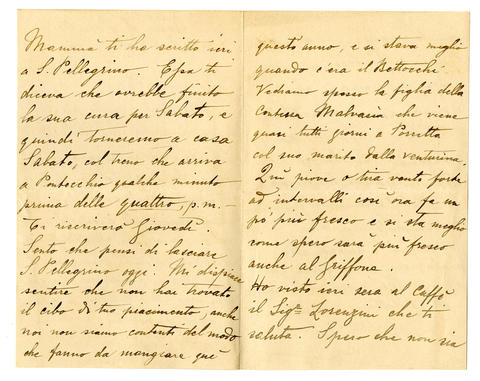 Mammà ti ha scritto ieri
a S. Pellegrino. Essa ti
diceva che avrebbe finito
la sua cura per Sabato, e
quindi torneremo a casa
Sabato, col treno che arriva
a Pontecchio qualche minuto
prima delle quattro, p.m. —
Ti riscriverò Giovedì.
Sento che pensi di lasciare
S. Pellegrino oggi. Mi dispiace
sentire che non hai trovato
il cibo di tuo piacimento, anche
noi non siamo contenti del modo
che fanno da mangiare quì
questo anno, e si stava meglio
quando c'era il Bettocchi.
Vediamo spesso la figlia della
Contessa Malvasia che viene
quasi tutti giorni a Porretta
col suo marito dalla Venturina.
Quì piove o tira vento forte
ad intervalli così ora fa un
pò più fresco e si sta meglio
come spero sarà più fresco
anche al Griffone.
Ho visto ieri sera al Caffè
il Sigre Lorenzini che ti
saluta. Spero che non sia